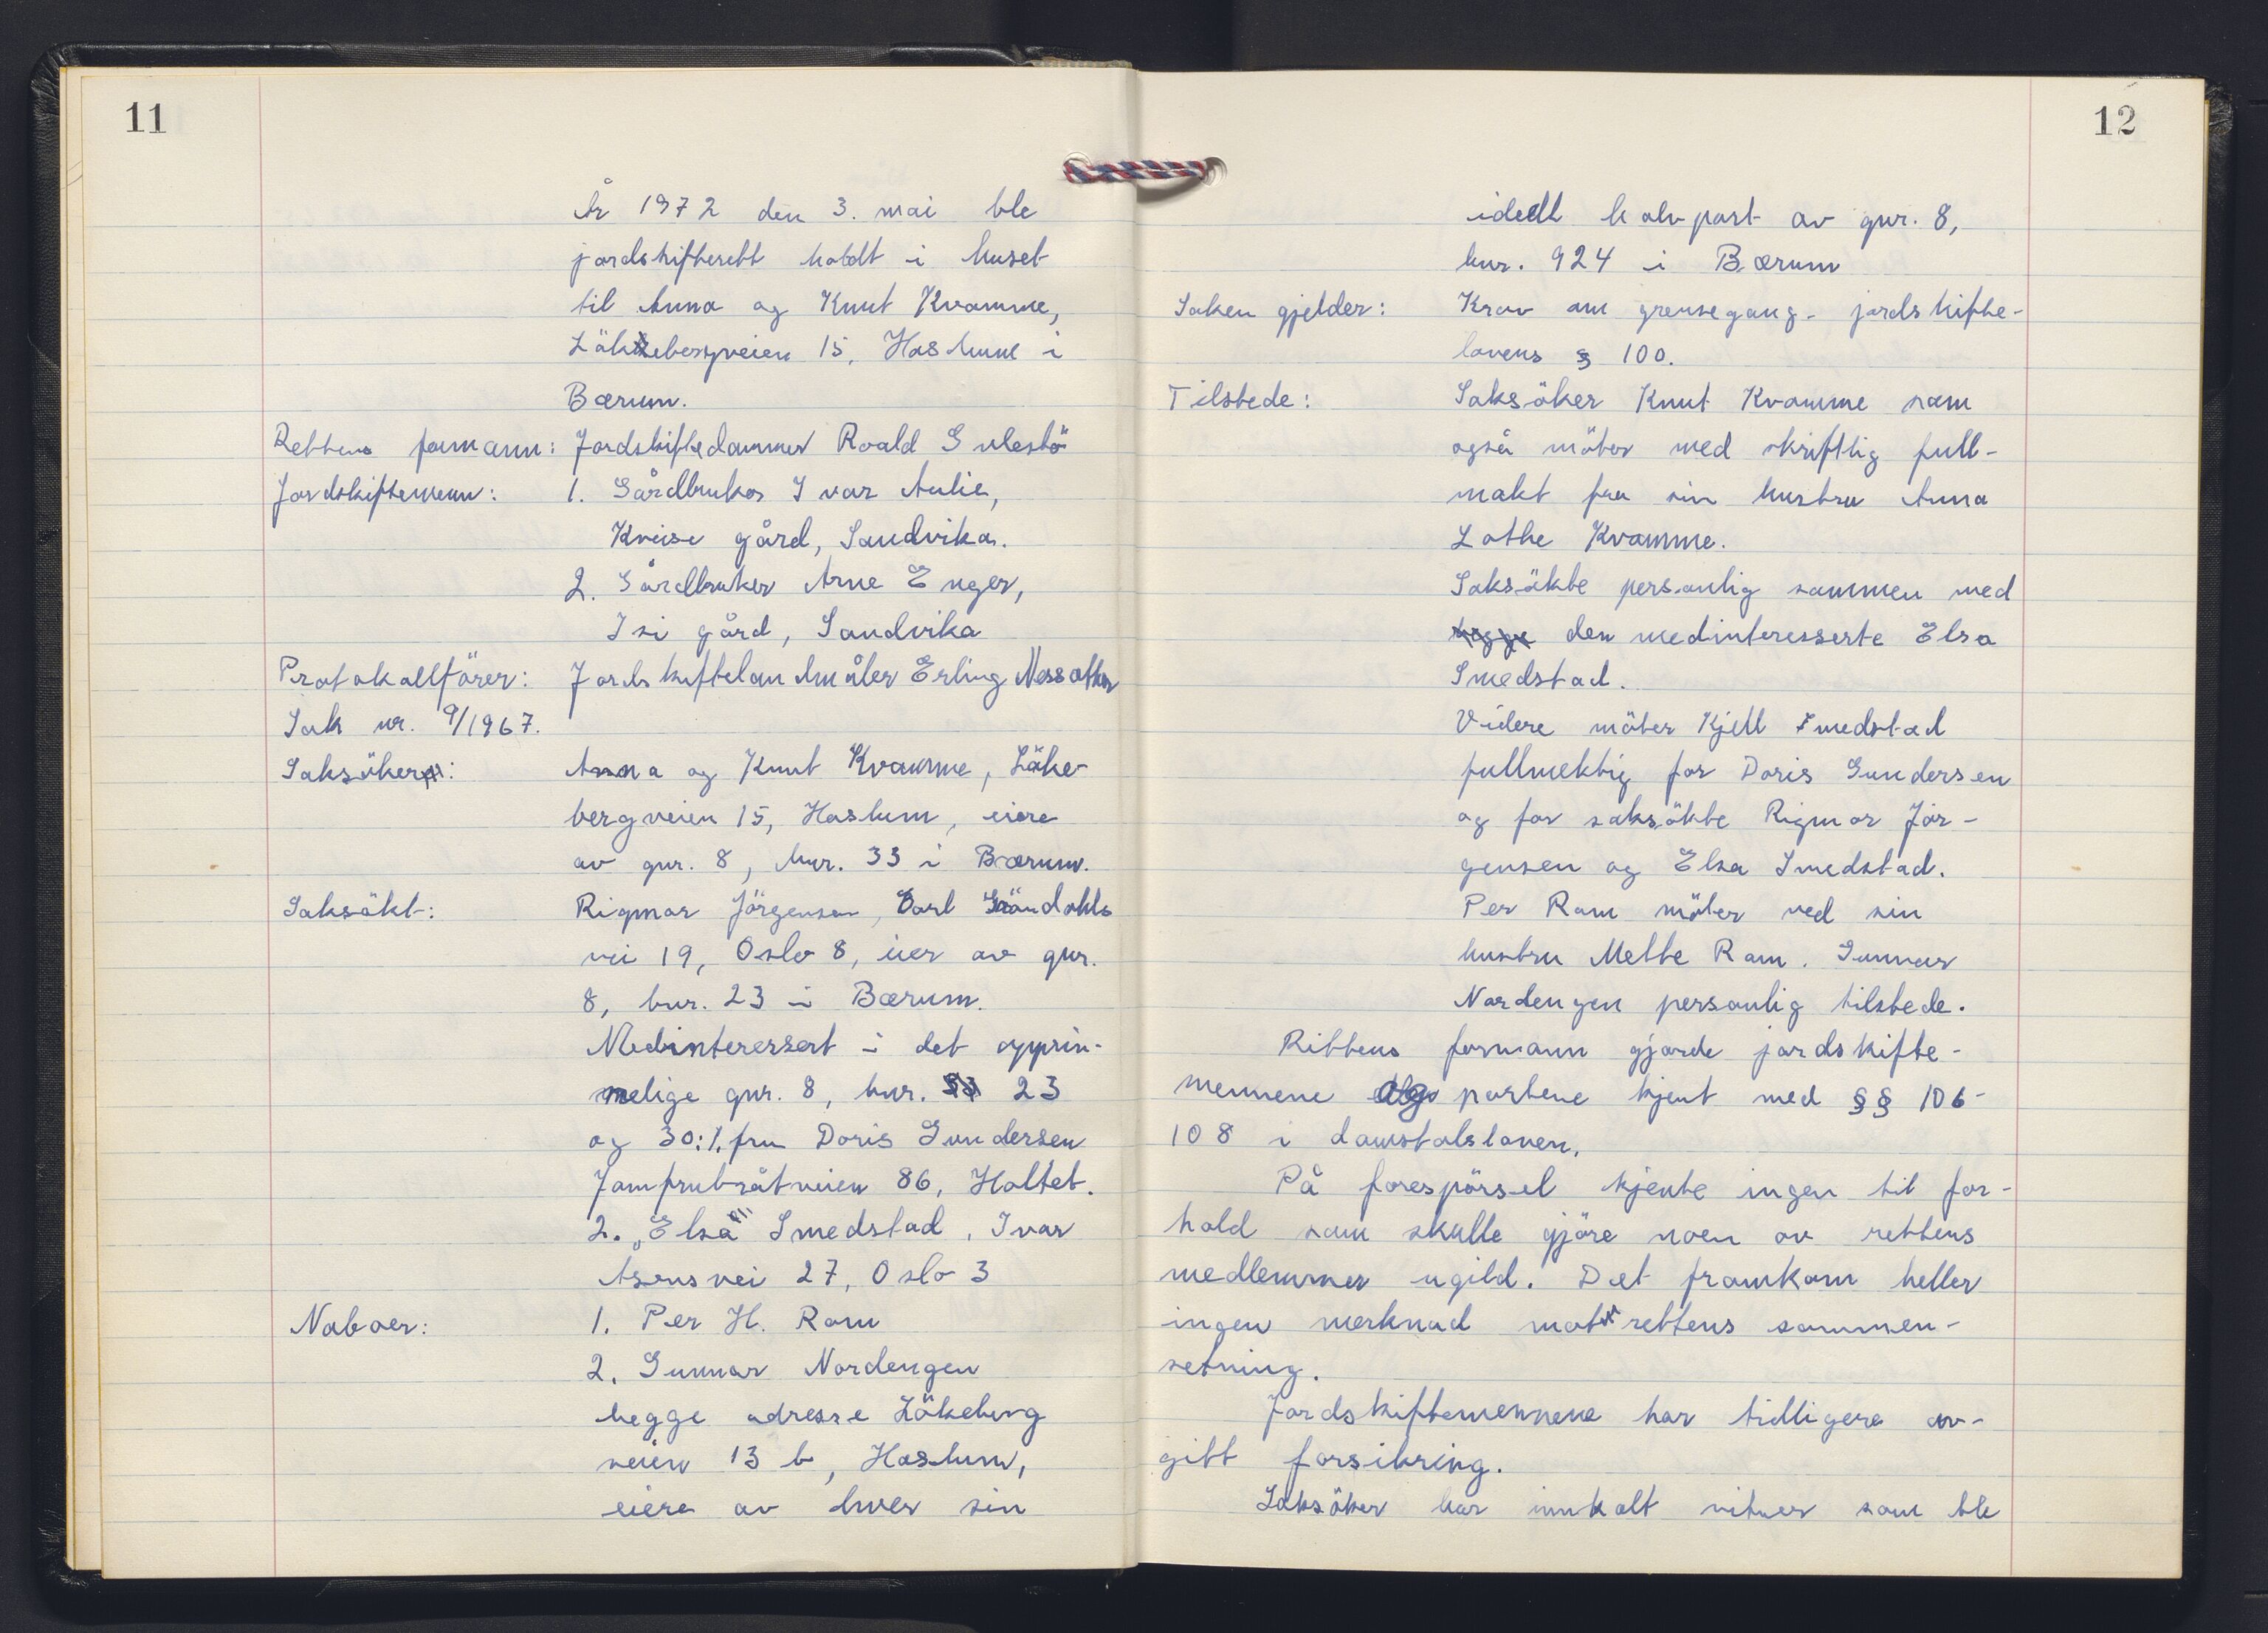 11
År 1972 den 3. mai ble
jordskifterett holdt i huset
til Anna og Knut Kvamme,
Lökebergveien 15, Haslum i
Bærum.
Rettens formann: Jordskiftedommer Roald Gulestö
Jordskiftemenn: 1. Gårdbruker Ivar Aulie,
Kveise gård, Sandvika.
2. Gårdbruker Arne Enger,
Isi gård, Sandvika
Protokollförer: Jordskiftelandmåler Erling
Sak nr. 9/1967.
Saksöker: Anna og Knut Kvamme, Löke-
bergveien 15, Haslum, eiere
av gnr. 8, bnr. 33 i Bærum.
Saksökt: Rigmor Jörgensen, Carl Gröndahls
vei 19, Oslo 8, eier av gnr.
8, bnr. 23 i Bærum.
Medinteressert i det opprin-
nelige gnr. 8, bnr. 23
og 30: 1. fru Doris Gundersen
Jomfrubråtveien 86, Holtet.
2. "Elsa" Smedstad, Ivar
Asensvei 27, Oslo 3
Naboer: 1. Per H. Ram
2. Gunnar Nordengen
begge adresse Lökeberg
veien 13 b, Haslum,
eiere av hver sin
12
ideell halvpart av gnr. 8,
bnr. 924 i Bærum
Saken gjelder: Krav om grensegang - jordskifte-
lovens § 100.
Tilstede: Saksöker Knut Kvamme som
også möter med skriftlig full-
makt fra sin hustru Anna
Lothe Kvamme.
Saksökte personlig sammen med
begge den medinteresserte Elsa
Smedstad.
Videre möter Kjell Smedstad
fullmektig for Doris Gundersen
og for saksökte Rigmor Jör-
gensen og Elsa Smedstad.
Per Ram möter ved sin
hustru Mette Ram. Gunnar
Nordengen personlig tilstede.
Rettens formann gjorde jordskifte-
mennene og partene kjent med §§ 106-
108 i domstolsloven.
På forespörsel kjente ingen til for-
hold som skulle gjöre noen av rettens
medlemmer ugild. Det framkom heller
ingen merknad mot rettens sammen-
setning.
Jordskiftemennene har tidligere av-
gitt forsikring.
Saksöker har innkalt vitner som ble